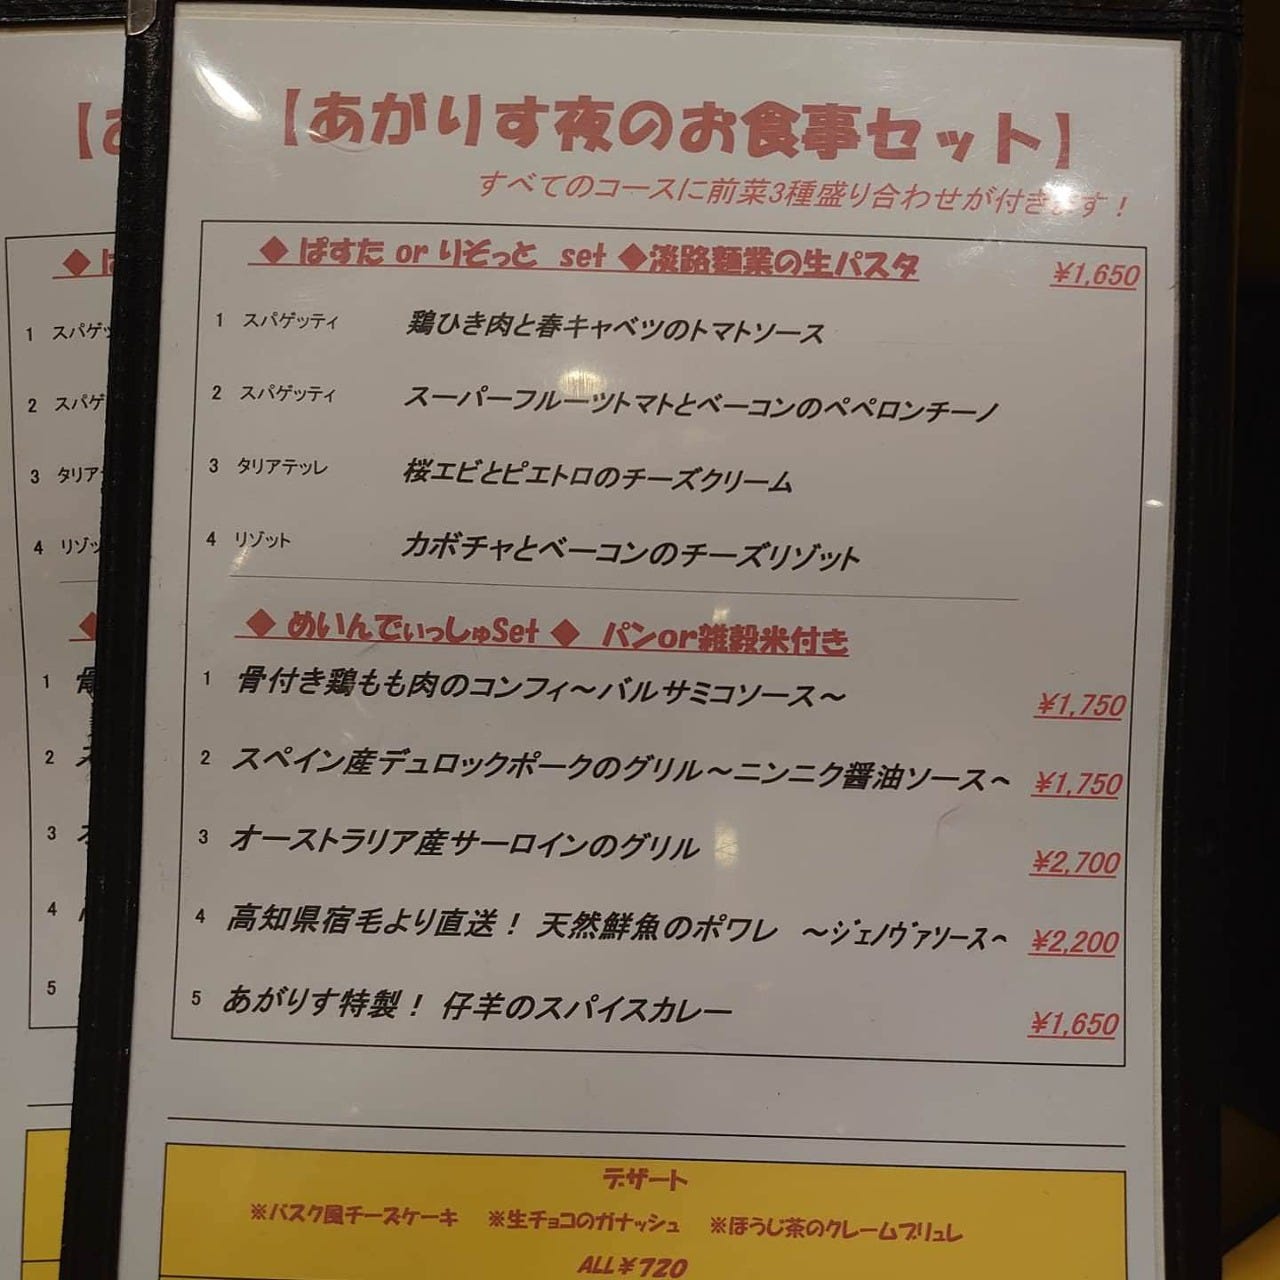 【あがりす夜のお食事セット】
すべてのコースに前菜3種盛り合わせが付きます！
◆ ぱすた or りそっと set ◆淡路麺業の生パスタ ¥1,650
1 スパゲッティ 鶏ひき肉と春キャベツのトマトソース
2 スパゲッティ スーパーフルーツトマトとベーコンのペペロンチーノ
3 タリアテッレ 桜エビとピエトロのチーズクリーム
4 リゾット カボチャとベーコンのチーズリゾット
◆ めいんでぃっしゅSet ◆ パンor雑穀米付き
1 骨付き鶏もも肉のコンフィ～バルサミコソース～ ¥1,750
2 スペイン産デュロックポークのグリル～ニンニク醤油ソース～ ¥1,750
3 オーストラリア産サーロインのグリル ¥2,700
4 高知県宿毛より直送！ 天然鮮魚のポワレ ～ジェノヴァソース～ ¥2,200
5 あがりす特製！ 仔羊のスパイスカレー ¥1,650
デザート
※バスク風チーズケーキ ※生チョコのガナッシュ ※ほうじ茶のクレームブリュレ
ALL¥720
1 スパゲッ
2 スパゲ
3 タリア
4 リゾッ
1 骨
2 ス
3
4
5